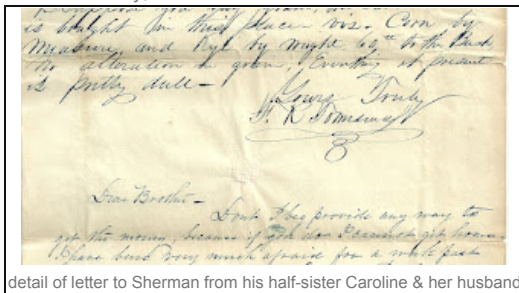 is bought in this place viz. Corn by
Measure, and Rye by weight 60 lb to the Bush
No alteration in grain, Everything at present
is pretty dull -
Yours Truly
K
Dear Brother -
Dont I beg provide any way to
get the money, because if you don I cannot get home
I have been very much afraid for a week past
detail of letter to Sherman from his half-sister Caroline & her husband